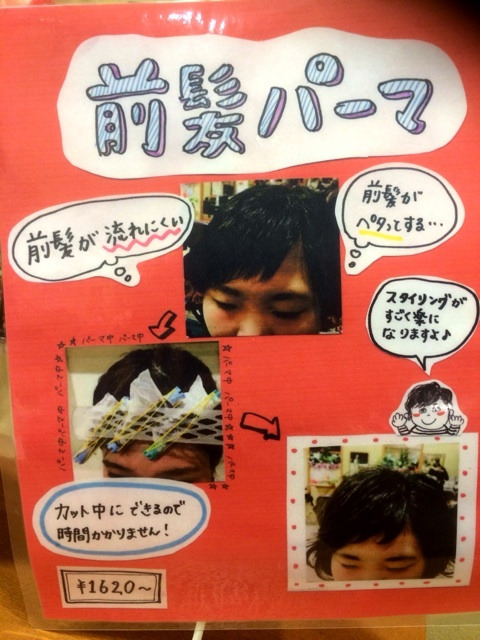 前髪パーマ
前髪が 流れにくい
前髪が
ペタってする…
スタイリングが
すごく楽に
なりますよ♪
☆ パーマ中 パーマ中
☆パーマ中 パーマ中
カット中に できるので
時間かかりません!
¥1620～